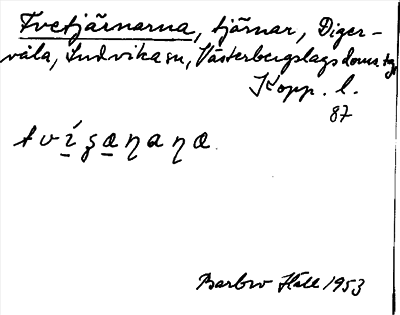 Tvetjärnarna, tjärnar, Diger-
våla, Ludvika sn, Västerbergslags doms tg,
Kopp. l.
87
Barbro Häll 1953